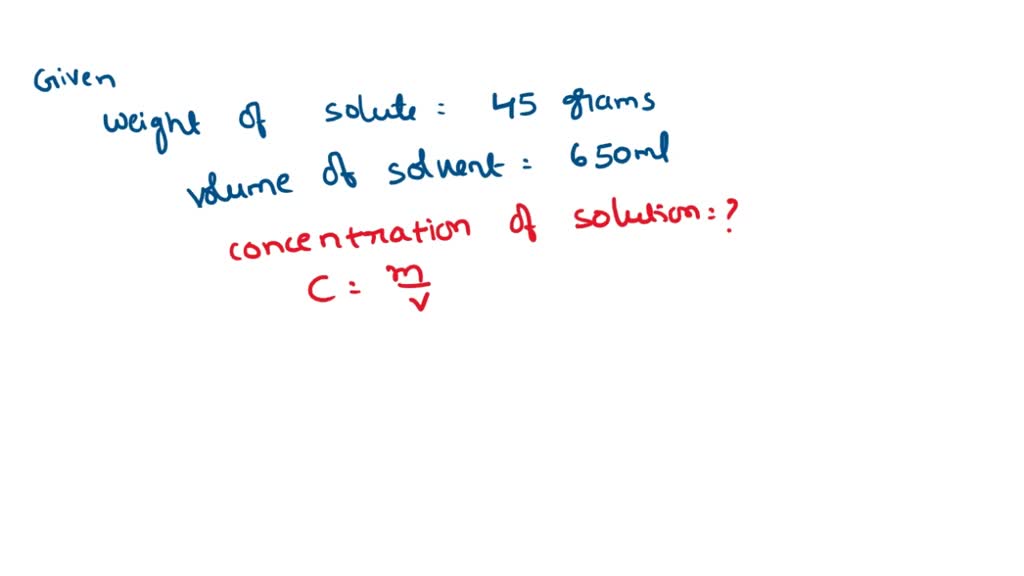 Given
weight of solute: 45 grams
volume of solvent: 650ml
concentration of solution: ?
C = m/v